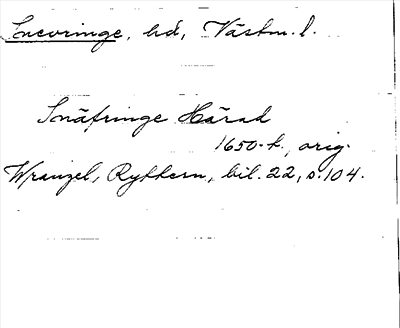 Snevringe, hd, Västm. l.
Snäfringe Härad
1650-t., orig.
Wrangel, Rytthern, bil. 22, s. 104.